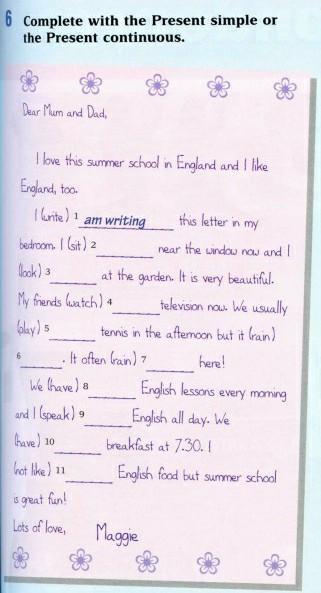 6 Complete with the Present simple or
the Present continuous.
Dear Mum and Dad,
I love this summer school in England and I like
England, too.
I (write) 1 am writing this letter in my
bedroom. I (sit) 2 ________ near the window now and I
(look) 3 ________ at the garden. It is very beautiful.
My friends (watch) 4 ________ television now. We usually
(play) 5 ________ tennis in the afternoon but it (rain)
6 ________. It often (rain) 7 ________ here!
We (have) 8 ________ English lessons every morning
and I (speak) 9 ________ English all day. We
(have) 10 ________ breakfast at 7.30. I
(not like) 11 ________ English food but summer school
is great fun!
Lots of love,
Maggie